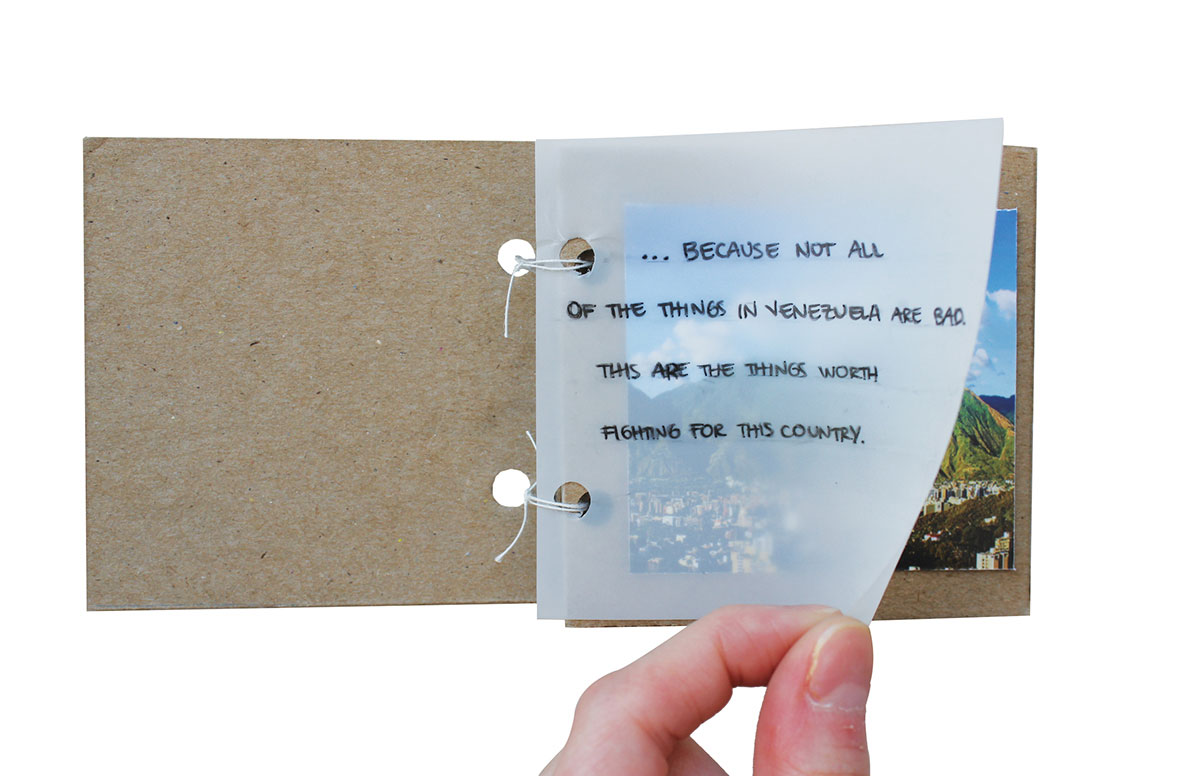 ... BECAUSE NOT ALL
OF THE THINGS IN VENEZUELA ARE BAD.
THIS ARE THE THINGS WORTH
FIGHTING FOR THIS COUNTRY.